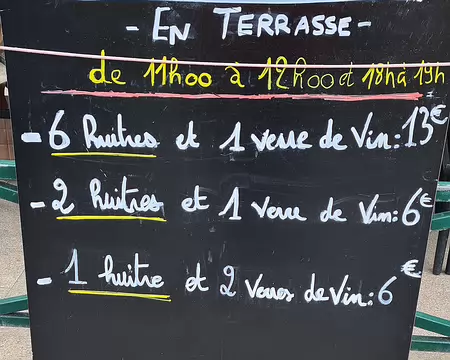 - EN TERRASSE -
de 11h00 à 12h00 et 18h à 19h
- 6 huitres et 1 verre de Vin: 13€
- 2 huitres et 1 verre de Vin: 6€
- 1 huitre et 2 verres de Vin: 6€